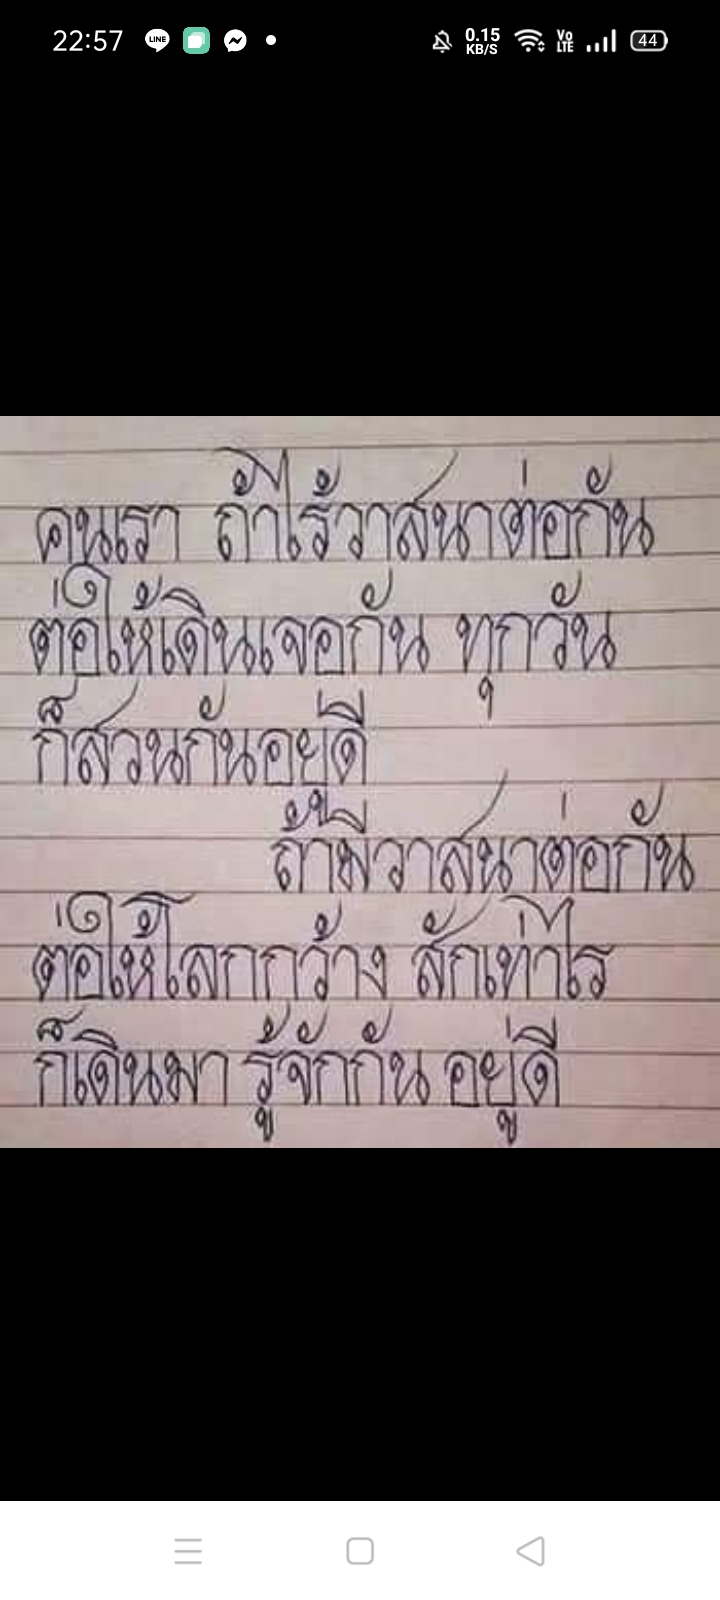 22:57 LINE 0.15 KB/S Vo LTE 44
คนเรา ถ้าไร้วาสนาต่อกัน
ต่อให้เดินเจอกัน ทุกวัน
ก็สวนกันอยู่ดี
ถ้ามีวาสนาต่อกัน
ต่อให้โลกกว้าง สักเท่าไร
ก็เดินมา รู้จักกัน อยู่ดี